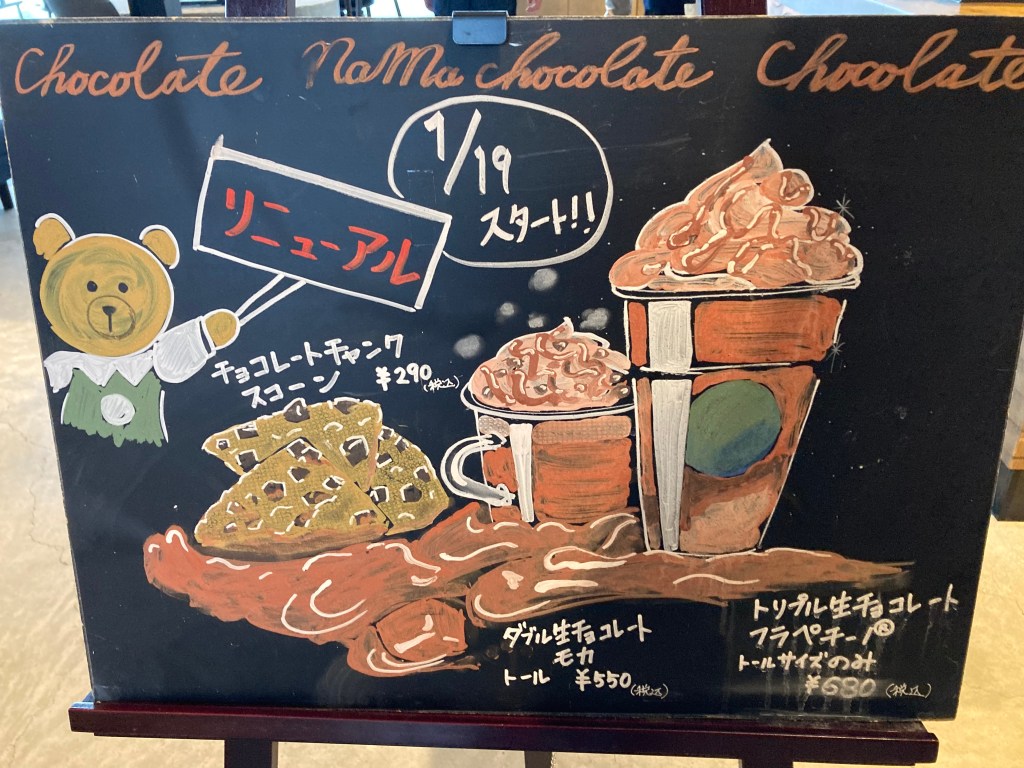 Chocolate Nama chocolate Chocolate
1/19
スタート!!
リニューアル
チョコレートチャンク
スコーン ¥290(税込)
ダブル生チョコレート
モカ
トール ¥550(税込)
トリプル生チョコレート
フラペチーノ®
トールサイズのみ
¥680(税込)